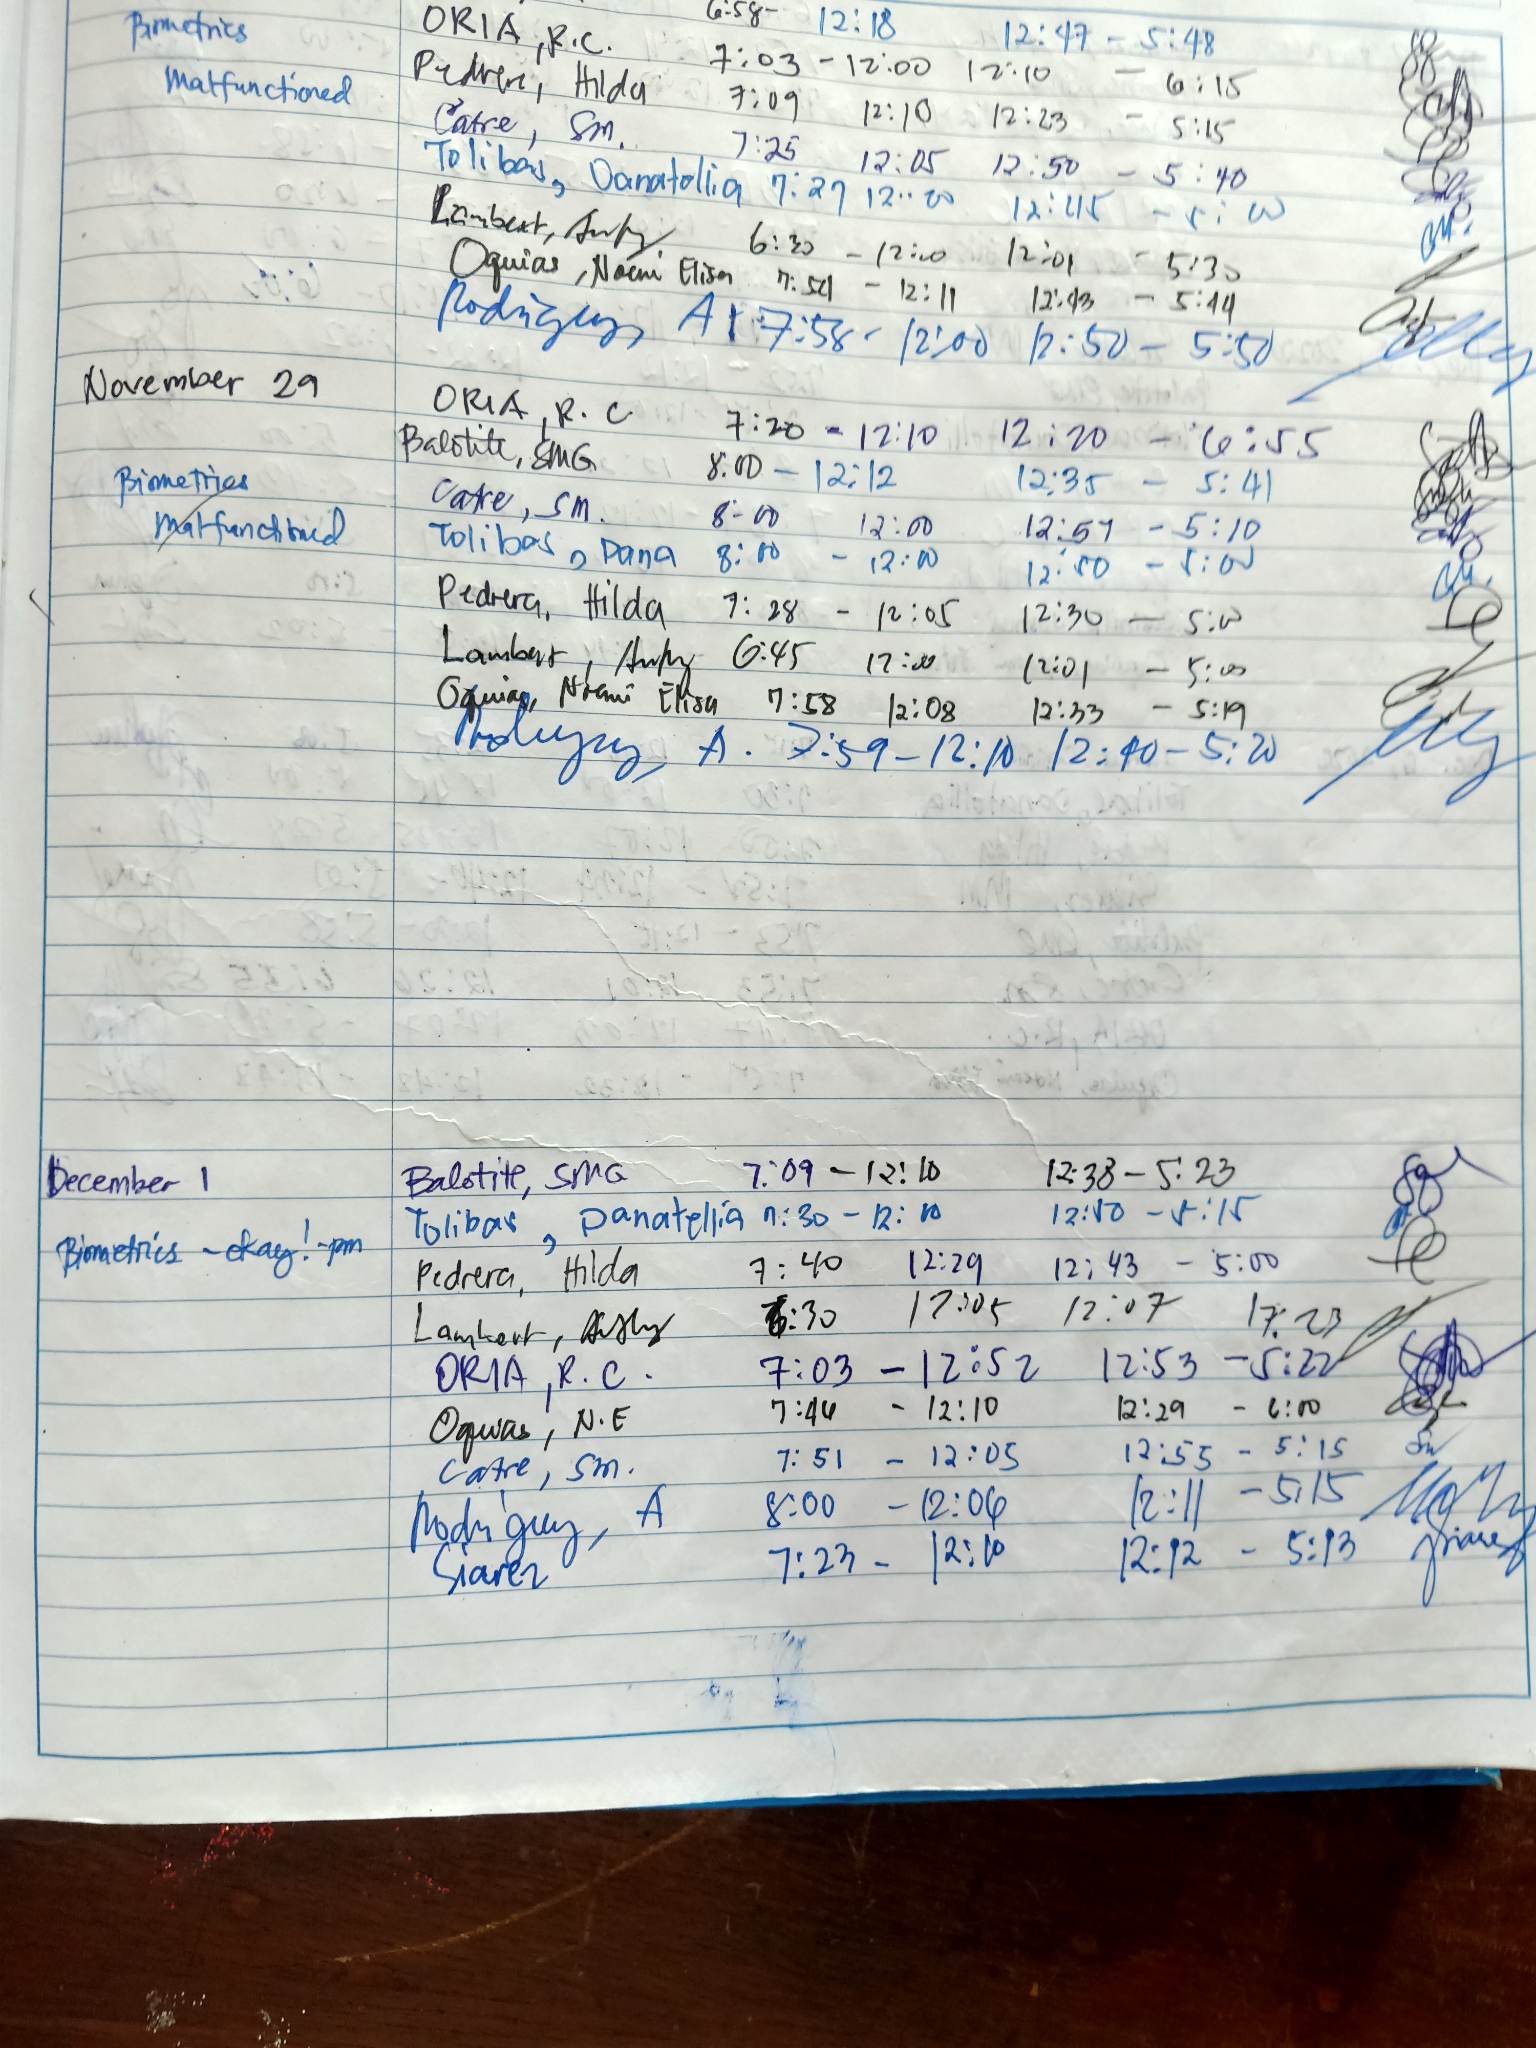 6:58- 12:18 12:47 - 5:48
Biometrics ORIA, R.C. 7:03 - 12:00 12:10 - 6:15
Malfunctioned Pedrera, Hilda 7:09 12:10 12:23 - 5:15
Catre, SM. 7:25 12:05 12:50 - 5:40
Tolibas, Danatellia 7:27 12:00 12:45 - 5:00
Lambert, 6:30 - 12:00 12:01 - 5:30
Oquias, Noemi Elisa 7:54 - 12:11 12:43 - 5:44
Rodriguez, A 7:58 - 12:00 12:50 - 5:50
November 29 ORIA, R. C 7:20 - 12:10 12:20 - 6:55
Balotite, SMG 8:00 - 12:12 12:35 - 5:41
Biometrics Catre, SM. 8:00 12:00 12:57 - 5:10
Malfunctioned Tolibas, Dana 8:00 - 12:00 12:50 - 5:00
Pedrera, Hilda 7:28 - 12:05 12:30 - 5:00
Lambert, 6:45 12:00 12:01 - 5:00
Oquias, Noemi Elisa 7:58 12:08 12:33 - 5:19
Rodriguez, A. 7:59 - 12:10 12:40 - 5:20
December 1 Balotite, SMG 7:09 - 12:10 12:38 - 5:23
Tolibas, Danatellia 7:30 - 12:10 12:50 - 5:15
Biometrics - okay! - pm Pedrera, Hilda 7:40 12:29 12:43 - 5:00
Lambert, 6:30 12:05 12:07 17:23
ORIA, R. C. 7:03 - 12:52 12:53 - 5:22
Oquias, N.E 7:46 - 12:10 12:29 - 6:00
Catre, SM. 7:51 - 12:05 12:55 - 5:15
Rodriguez, A 8:00 - 12:06 12:11 - 5:15
Siarez 7:23 - 12:10 12:12 - 5:13